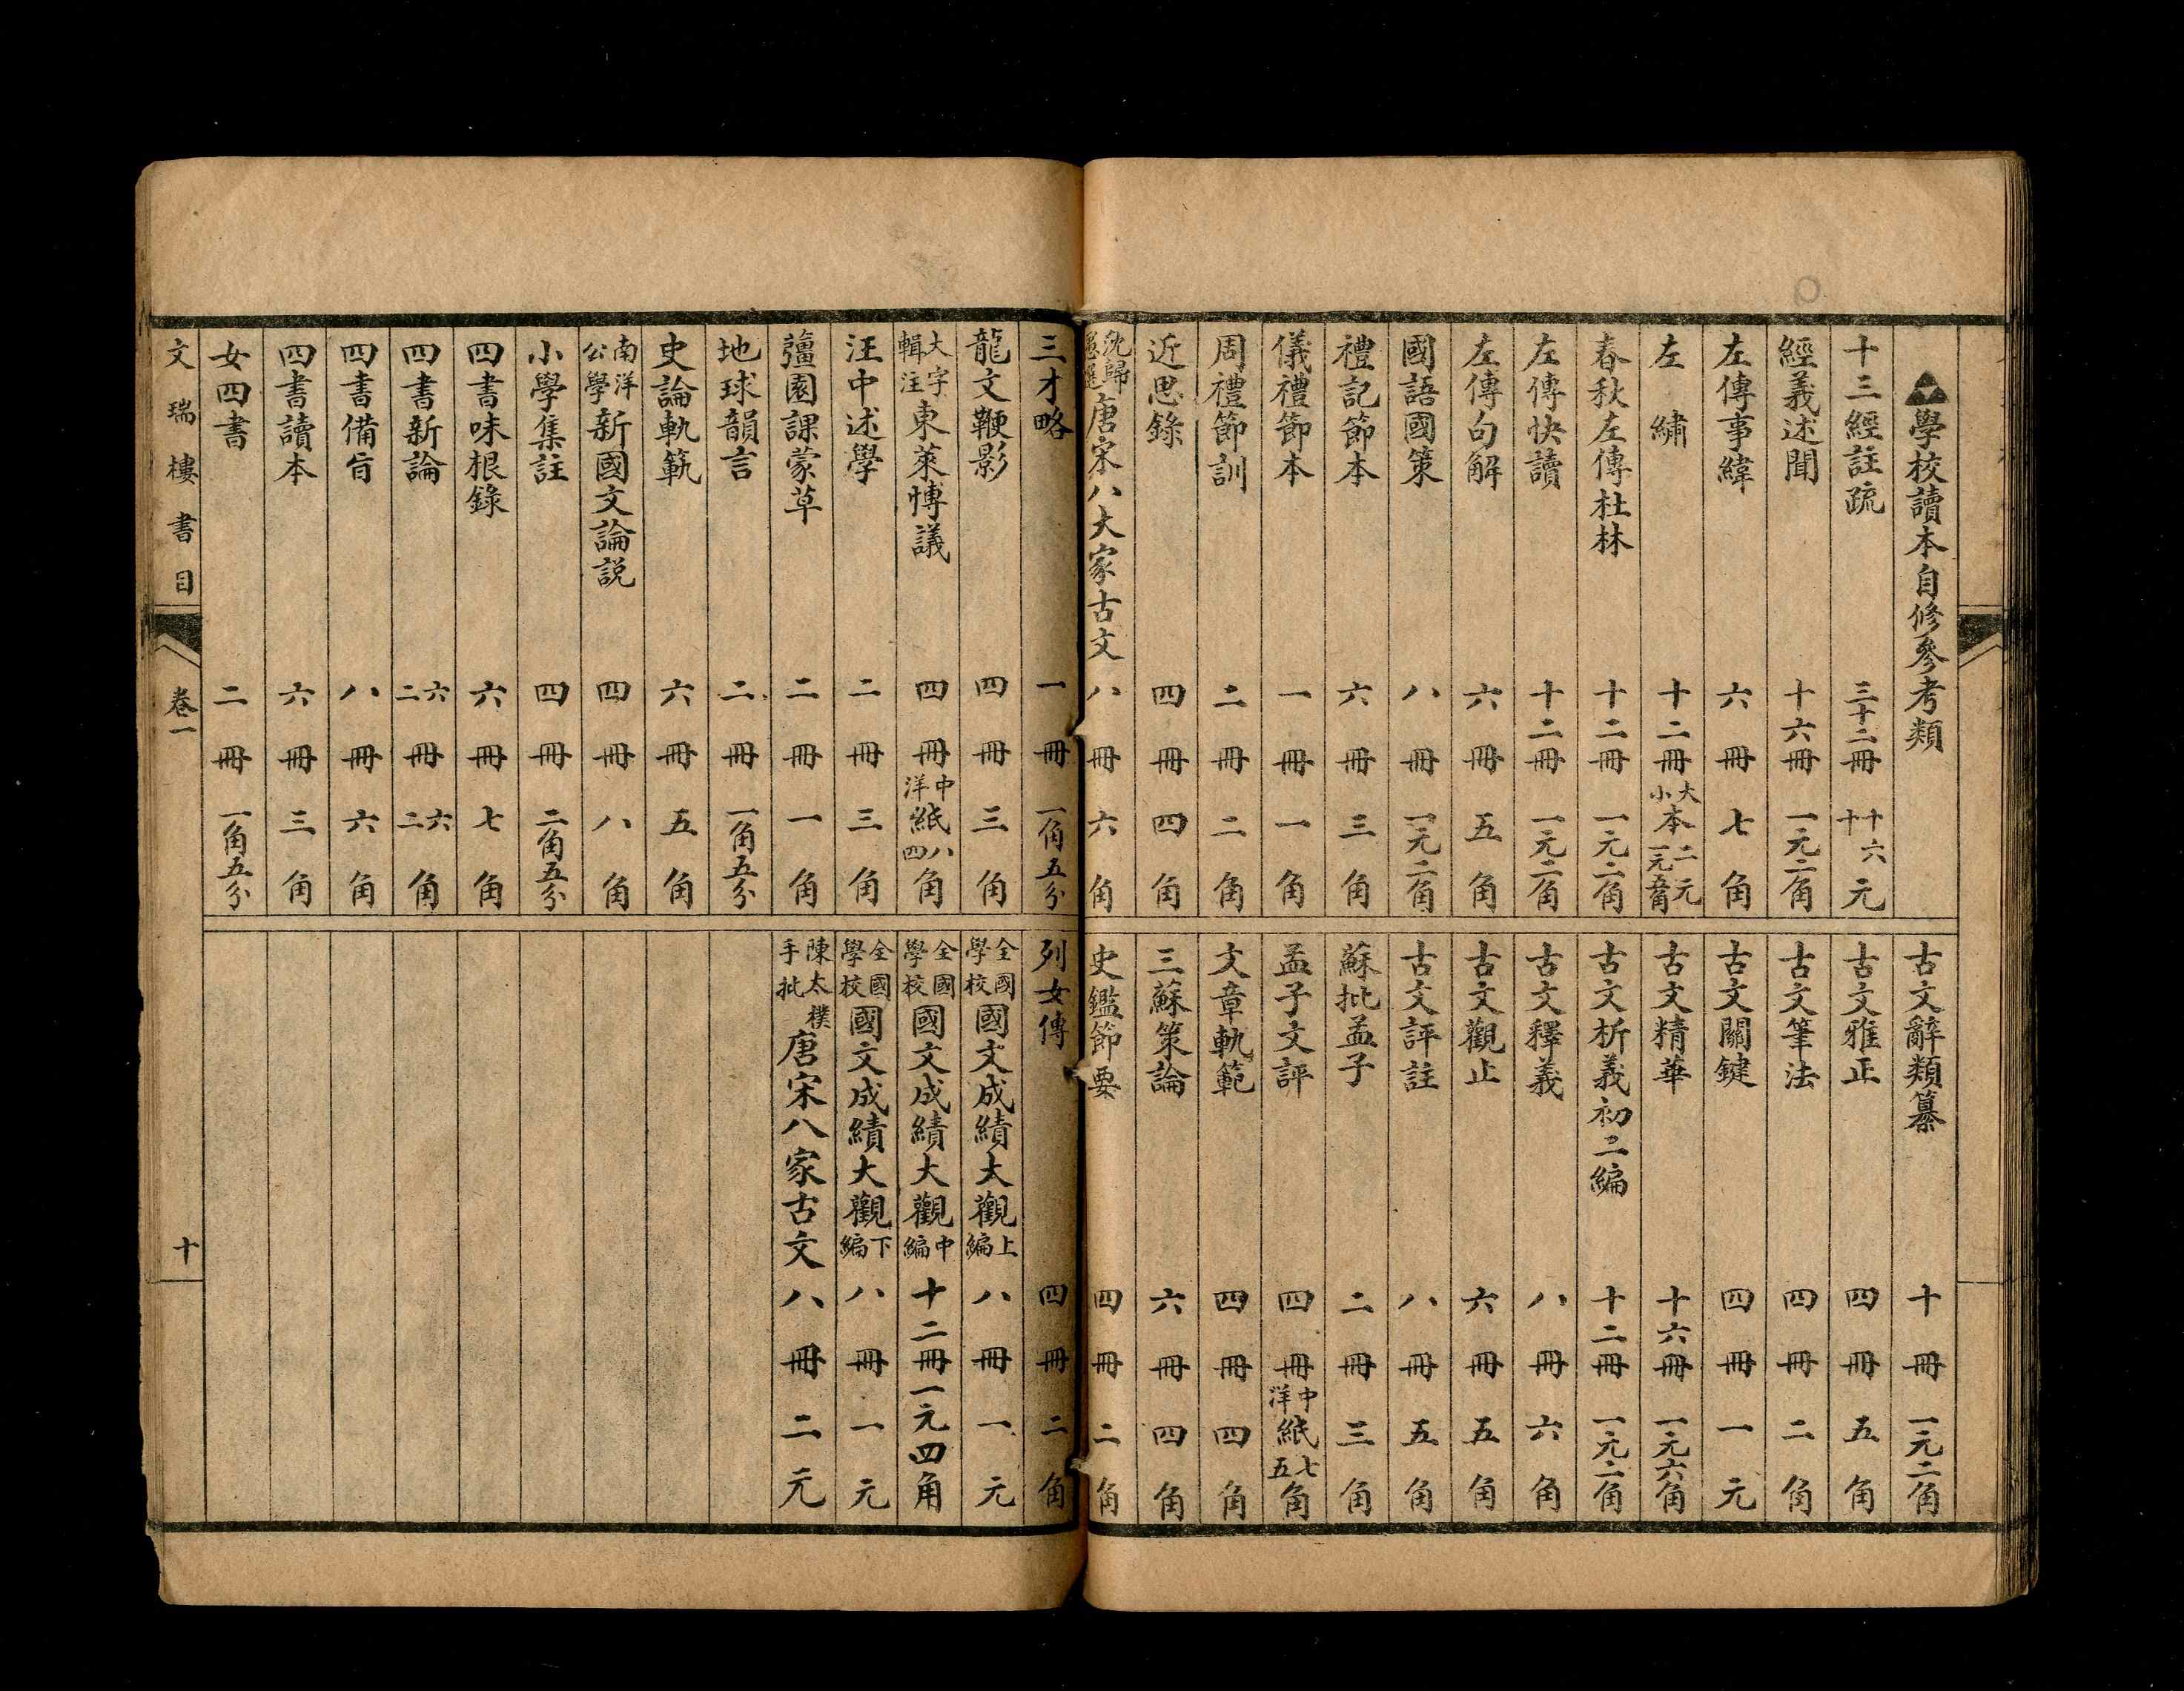 學校讀本自修參考類
十三經註疏 三十二冊 十六元 十
經義述聞 十六冊 一元二角
左傳事緯 六冊 七角
左繡 十二冊 大小本 二元 一元八角
春秋左傳杜林 十二冊 一元二角
左傳快讀 十二冊 一元二角
左傳句解 六冊 五角
國語國策 八冊 一元二角
禮記節本 六冊 三角
儀禮節本 一冊 一角
周禮節訓 二冊 二角
近思錄 四冊 四角
沈歸愚選 唐宋八大家古文 八冊 六角
古文辭類纂 十冊 一元二角
古文雅正 四冊 五角
古文筆法 四冊 二角
古文關鍵 四冊 一元
古文精華 十六冊 一元六角
古文析義初二編 十二冊 一元二角
古文釋義 八冊 六角
古文觀止 六冊 五角
古文評註 八冊 五角
蘇批孟子 二冊 三角
孟子文評 四冊 中洋紙 七五角
文章軌範 四冊 四角
三蘇策論 六冊 四角
史鑑節要 四冊 二角
三才略 一冊 一角五分
龍文鞭影 四冊 三角
大字輯注 東萊博議 四冊 中洋紙 八四角
汪中述學 二冊 三角
彊園課蒙草 二冊 一角
地球韻言 二冊 一角五分
史論軌範 六冊 五角
南洋公學 新國文論説 四冊 八角
小學集註 四冊 二角五分
四書味根錄 六冊 七角
四書新論 六二冊 六二角
四書備旨 八冊 六角
四書讀本 六冊 三角
女四書 二冊 一角五分
列女傳 四冊 二角
全國學校 國文成績大觀 上編 八冊 一元
全國學校 國文成績大觀 中編 十二冊 一元四角
全國學校 國文成績大觀 下編 八冊 一元
陳太樸手批 唐宋八家古文 八冊 二元
文瑞樓書目 卷一 十